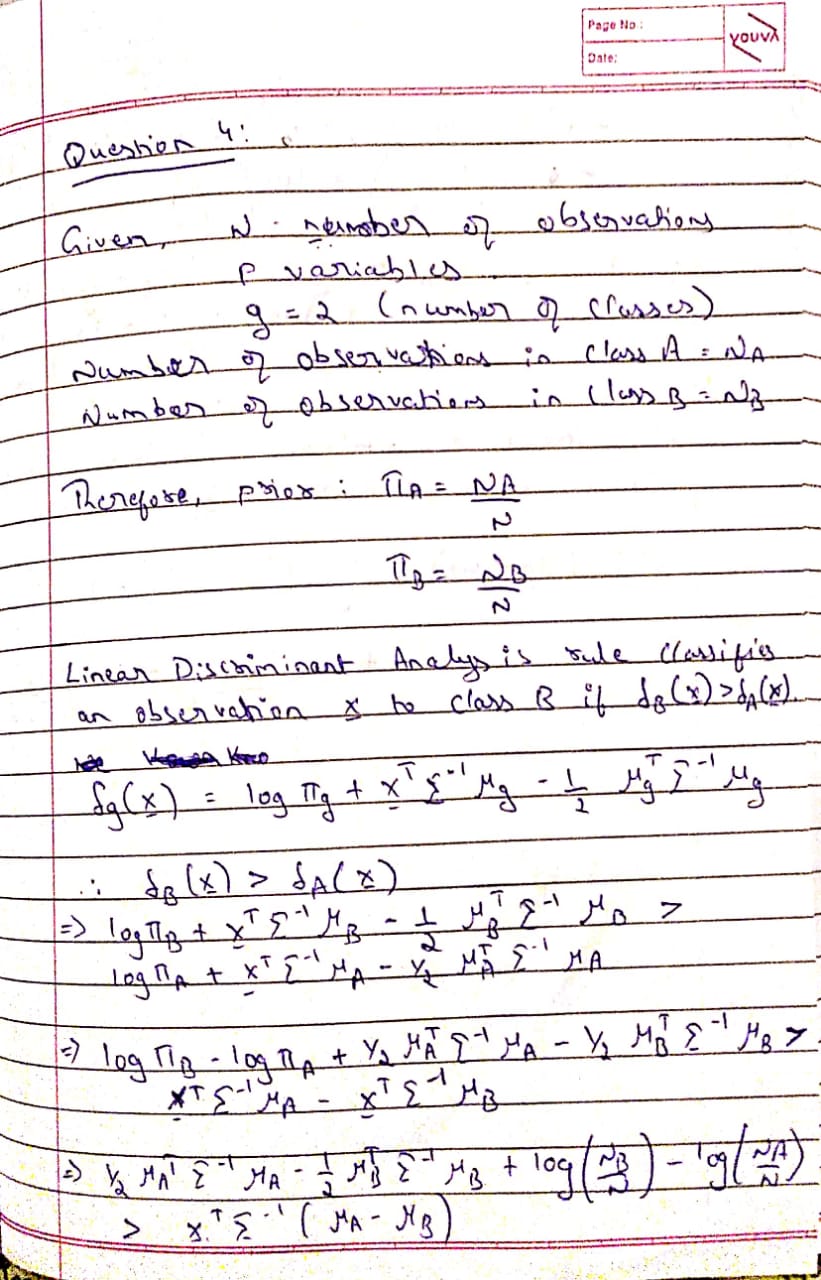 Page No :
YOUVA
Date:
Question 4:
Given, N - number of observations
P variables
g = 2 (number of classes)
Number of observations in class A = NA
Number of observations in class B = NB
Therefore, prior : πA = NA/N
πB = NB/N
Linear Discriminant Analysis rule classifies
an observation x to class B if δB(x) > δA(x).
δg(x) = log πg + xᵀ Σ⁻¹ μg - 1/2 μgᵀ Σ⁻¹ μg
∴ δB(x) > δA(x)
⇒ log πB + xᵀ Σ⁻¹ μB - 1/2 μBᵀ Σ⁻¹ μB >
log πA + xᵀ Σ⁻¹ μA - 1/2 μAᵀ Σ⁻¹ μA
⇒ log πB - log πA + 1/2 μAᵀ Σ⁻¹ μA - 1/2 μBᵀ Σ⁻¹ μB >
xᵀ Σ⁻¹ μA - xᵀ Σ⁻¹ μB
⇒ 1/2 μAᵀ Σ⁻¹ μA - 1/2 μBᵀ Σ⁻¹ μB + log(NB/N) - log(NA/N)
> xᵀ Σ⁻¹ (μA - μB)